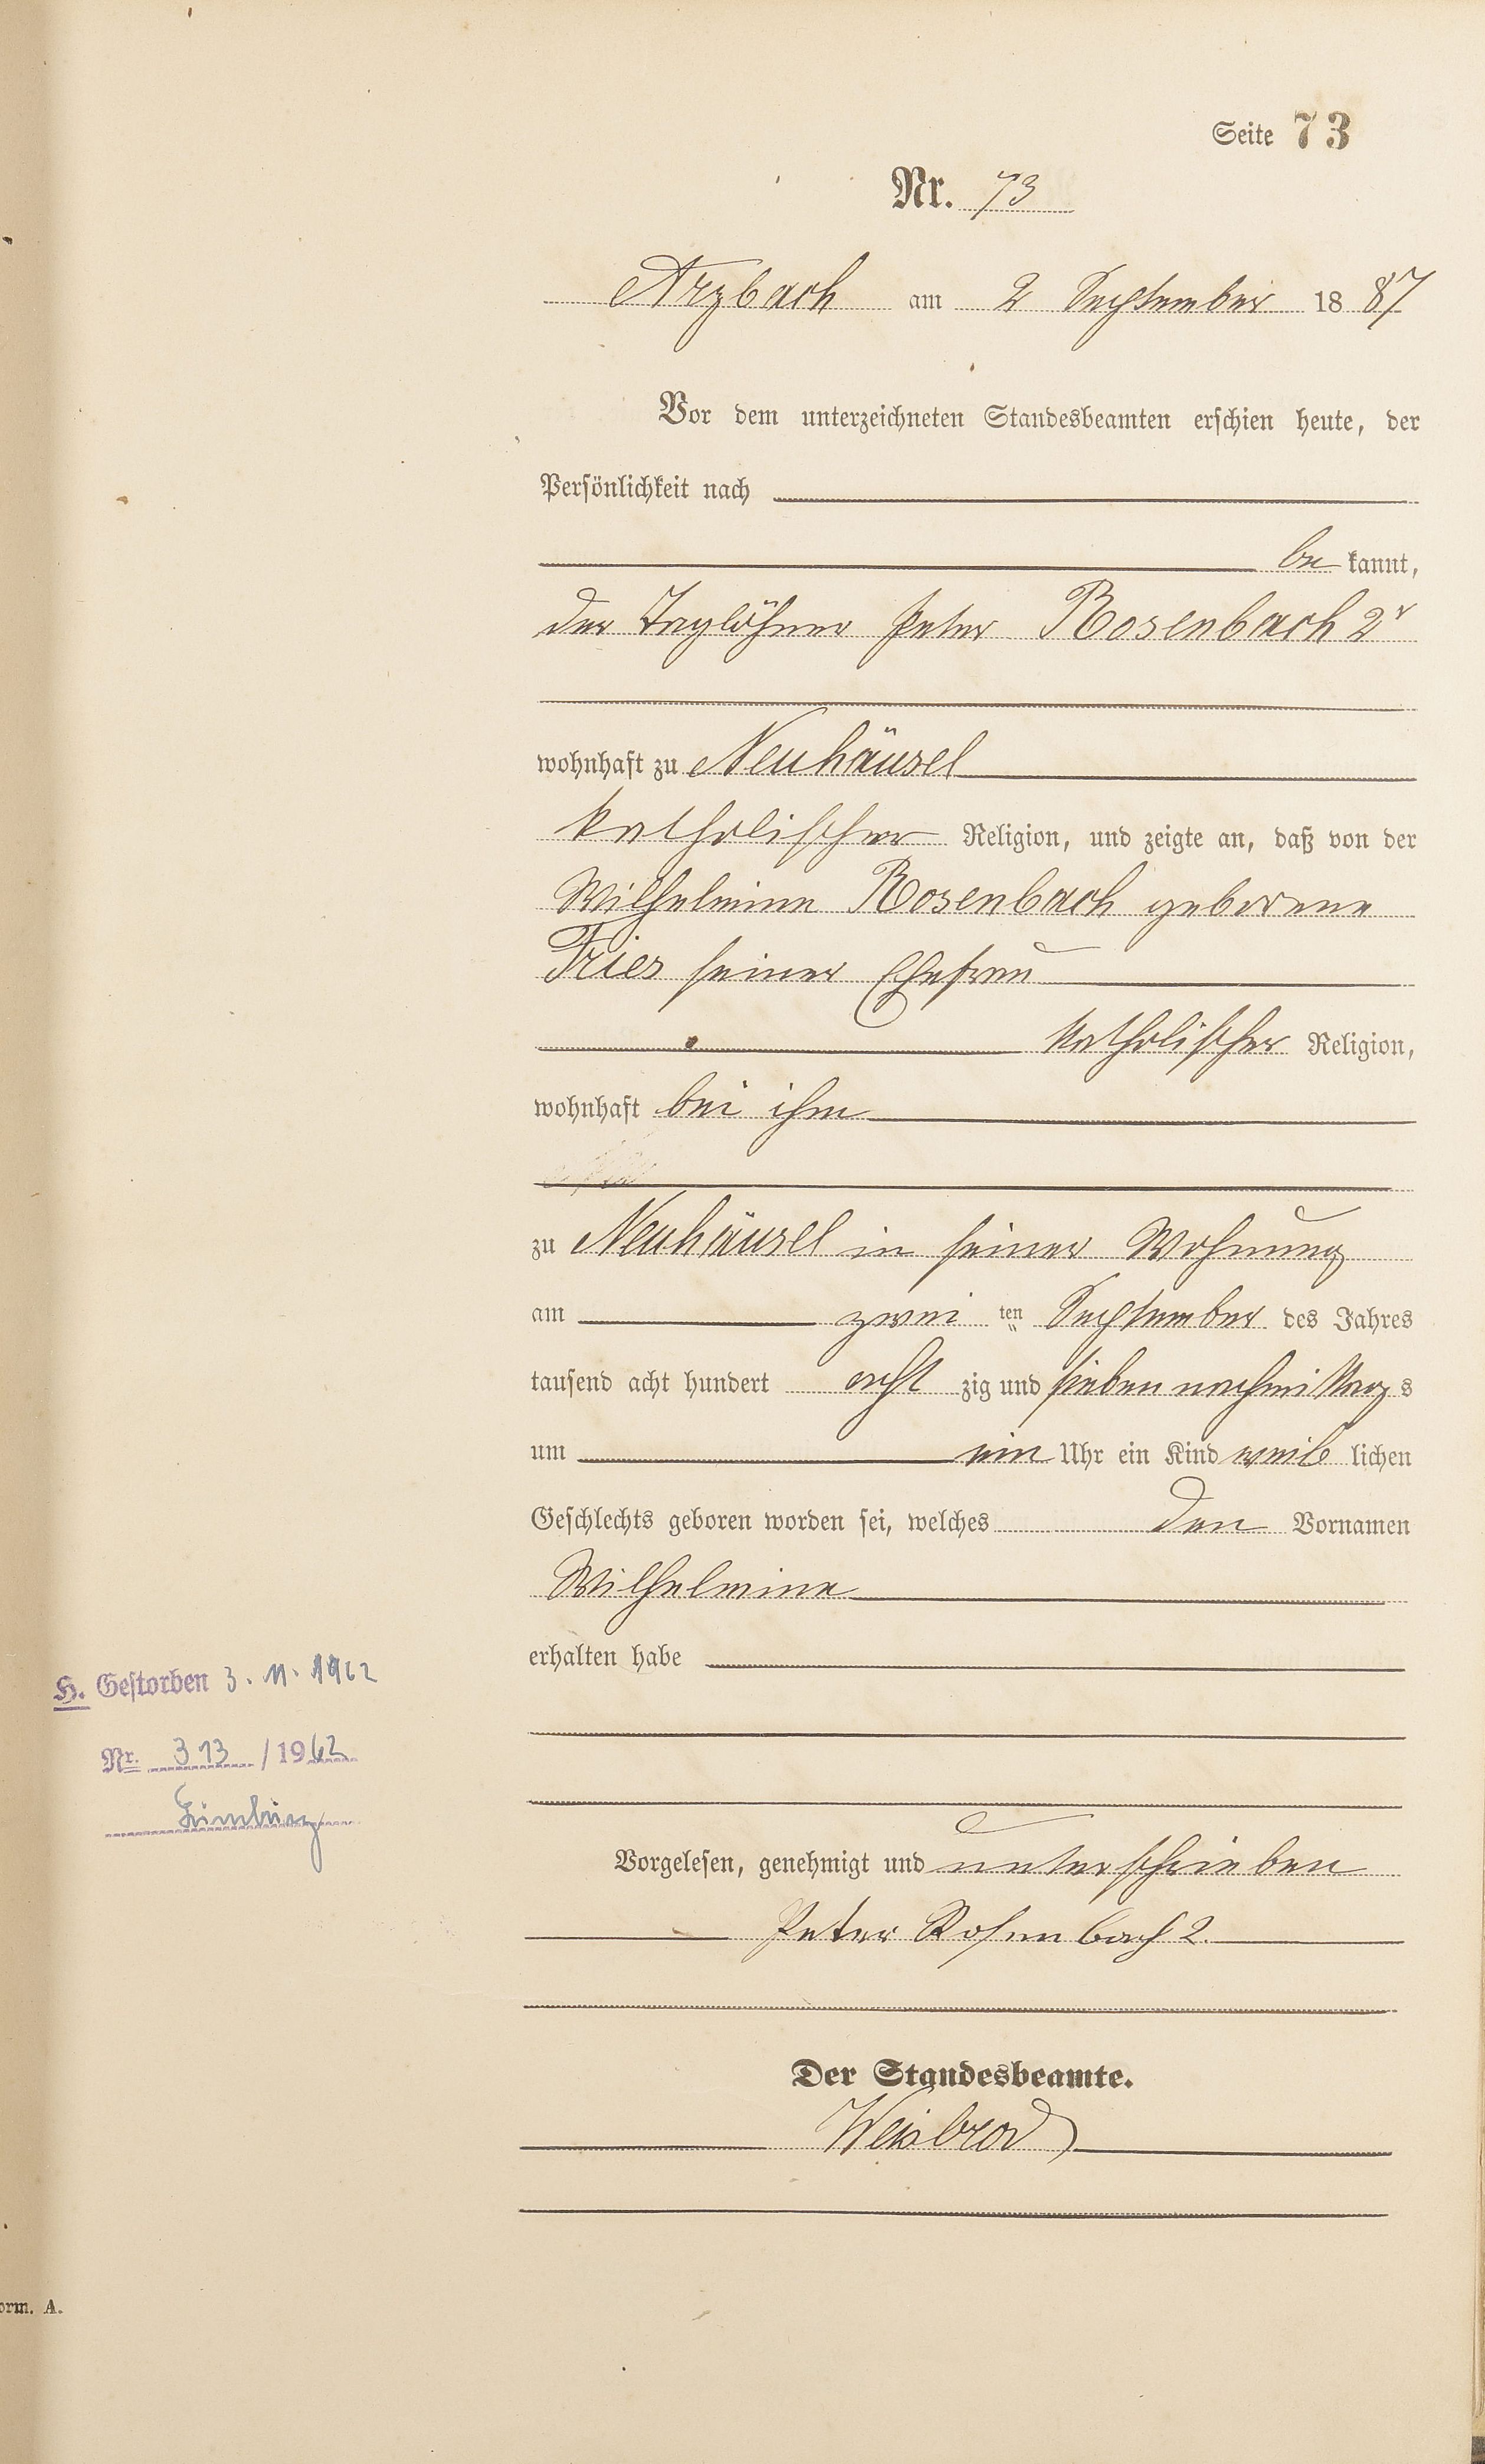 Seite 73
Nr. 73
Arzbach am 2 September 1887
Vor dem unterzeichneten Standesbeamten erschien heute, der
Persönlichkeit nach
be kannt,
der Taglöhner Peter Rosenbach 2r
wohnhaft zu Neuhäusel
katholischer Religion, und zeigte an, daß von der
Wilhelmine Rosenbach geborene
Fries seiner Ehefrau
katholischer Religion,
wohnhaft bei ihm
zu Neuhäusel in seiner Wohnung
am zwei ten September des Jahres
tausend acht hundert acht zig und sieben nachmittags
um ein Uhr ein Kind weib lichen
Geschlechts geboren worden sei, welches den Vornamen
Wilhelmine
erhalten habe
H. Gestorben 3. 11. 1962
Nr. 313 / 1962
Limburg
Vorgelesen, genehmigt und unterschrieben
Peter Rosenbach 2.
Der Standesbeamte.
Weisbrod
orm. A.